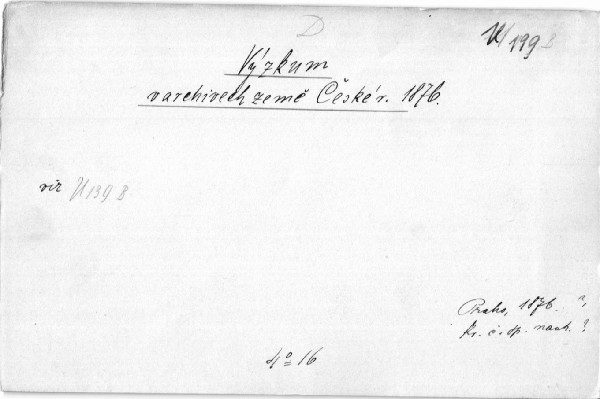 D
V/199 B
Výzkum
v archivech země České r. 1876.
viz U 139 B
Praha, 1876. ?,
Kr. č. sp. nauk. ?
4° 16